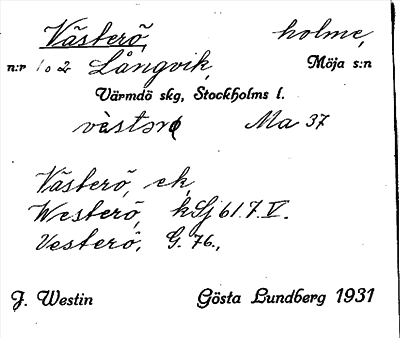 Västerö, holme,
n:r 1 o 2 Långvik, Möja s:n
Värmdö skg, Stockholms l.
västərö Ma 37
Västerö, ek,
Westerö, kSj 61.7.V.
Vesterö, G. 76.,
J. Westin Gösta Lundberg 1931